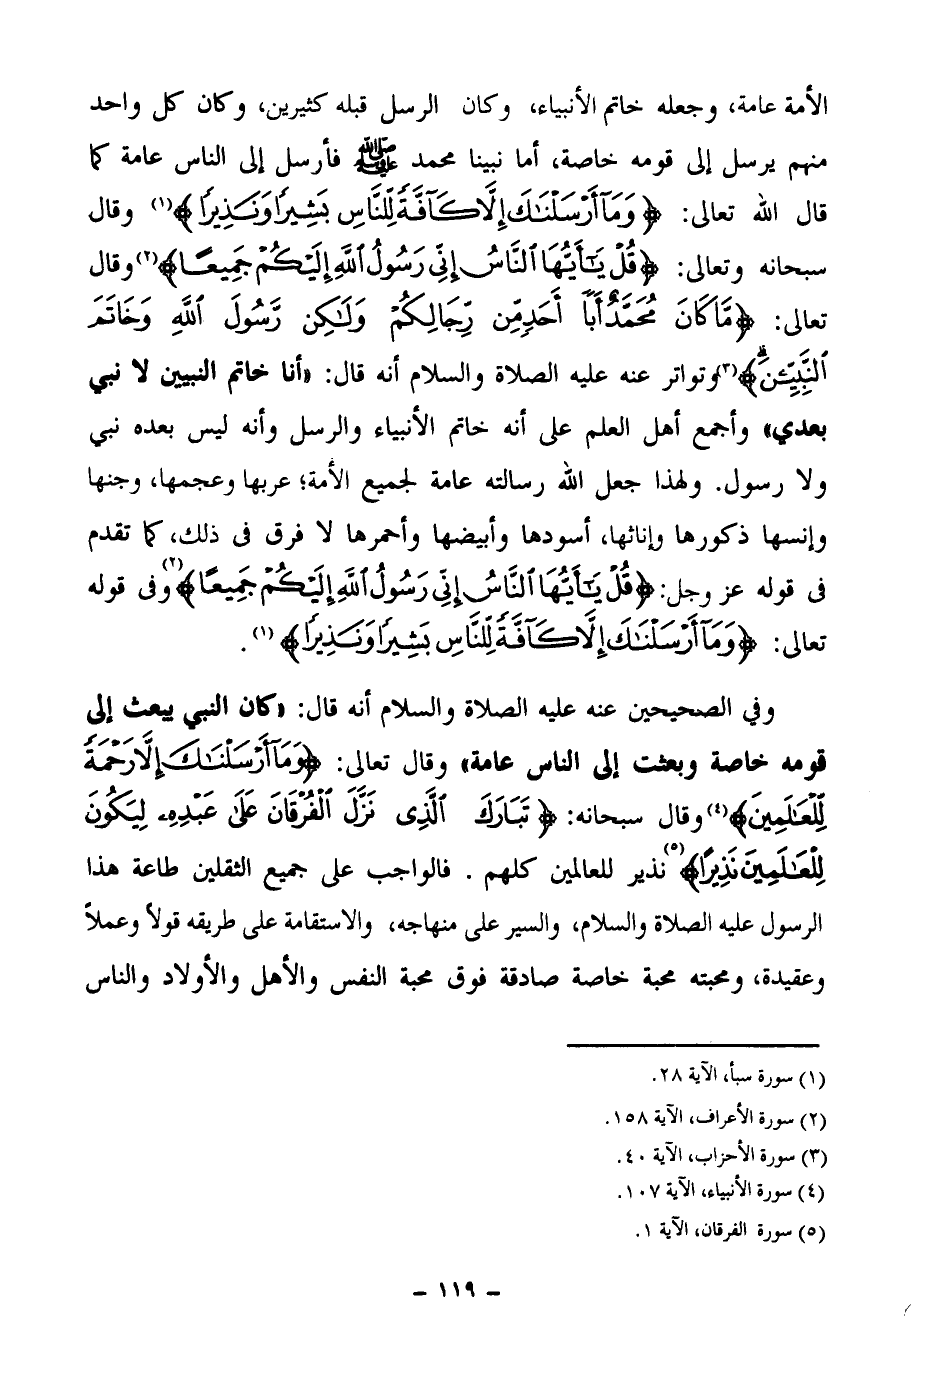 الأمة عامة، وجعله خاتم الأنبياء، وكان الرسل قبله كثيرين، وكان كل واحد
منهم يرسل إلى قومه خاصة، أما نبينا محمد ﷺ فأرسل إلى الناس عامة كما
قال الله تعالى: ﴿وَمَآ أَرْسَلْنَٰكَ إِلَّا كَآفَّةً لِّلنَّاسِ بَشِيرًا وَنَذِيرًا﴾(١) وقال
سبحانه وتعالى: ﴿قُلْ يَٰٓأَيُّهَا ٱلنَّاسُ إِنِّى رَسُولُ ٱللَّهِ إِلَيْكُمْ جَمِيعًا﴾(٢) وقال
تعالى: ﴿مَّا كَانَ مُحَمَّدٌ أَبَآ أَحَدٍ مِّن رِّجَالِكُمْ وَلَٰكِن رَّسُولَ ٱللَّهِ وَخَاتَمَ
ٱلنَّبِيِّـۧنَ ۗ﴾(٣) وتواتر عنه عليه الصلاة والسلام أنه قال: «أنا خاتم النبيين لا نبي
بعدي» وأجمع أهل العلم على أنه خاتم الأنبياء والرسل وأنه ليس بعده نبي
ولا رسول. ولهذا جعل الله رسالته عامة لجميع الأمة؛ عربها وعجمها، وجنها
وإنسها ذكورها وإناثها، أسودها وأبيضها وأحمرها لا فرق فى ذلك، كما تقدم
فى قوله عز وجل: ﴿قُلْ يَٰٓأَيُّهَا ٱلنَّاسُ إِنِّى رَسُولُ ٱللَّهِ إِلَيْكُمْ جَمِيعًا﴾(٢) وفى قوله
تعالى: ﴿وَمَآ أَرْسَلْنَٰكَ إِلَّا كَآفَّةً لِّلنَّاسِ بَشِيرًا وَنَذِيرًا﴾ (١).
وفي الصحيحين عنه عليه الصلاة والسلام أنه قال: «كان النبي يبعث إلى
قومه خاصة وبعثت إلى الناس عامة» وقال تعالى: ﴿وَمَآ أَرْسَلْنَٰكَ إِلَّا رَحْمَةً
لِّلْعَٰلَمِينَ﴾(٤) وقال سبحانه: ﴿تَبَارَكَ ٱلَّذِى نَزَّلَ ٱلْفُرْقَانَ عَلَىٰ عَبْدِهِۦ لِيَكُونَ
لِلْعَٰلَمِينَ نَذِيرًا﴾(٥) نذير للعالمين كلهم . فالواجب على جميع الثقلين طاعة هذا
الرسول عليه الصلاة والسلام، والسير على منهاجه، والاستقامة على طريقه قولاً وعملاً
وعقيدة، ومحبته محبة خاصة صادقة فوق محبة النفس والأهل والأولاد والناس
(١) سورة سبأ، الآية ٢٨.
(٢) سورة الأعراف، الآية ١٥٨.
(٣) سورة الأحزاب، الآية ٤٠.
(٤) سورة الأنبياء، الآية ١٠٧.
(٥) سورة الفرقان، الآية ١.
– ١١٩ –